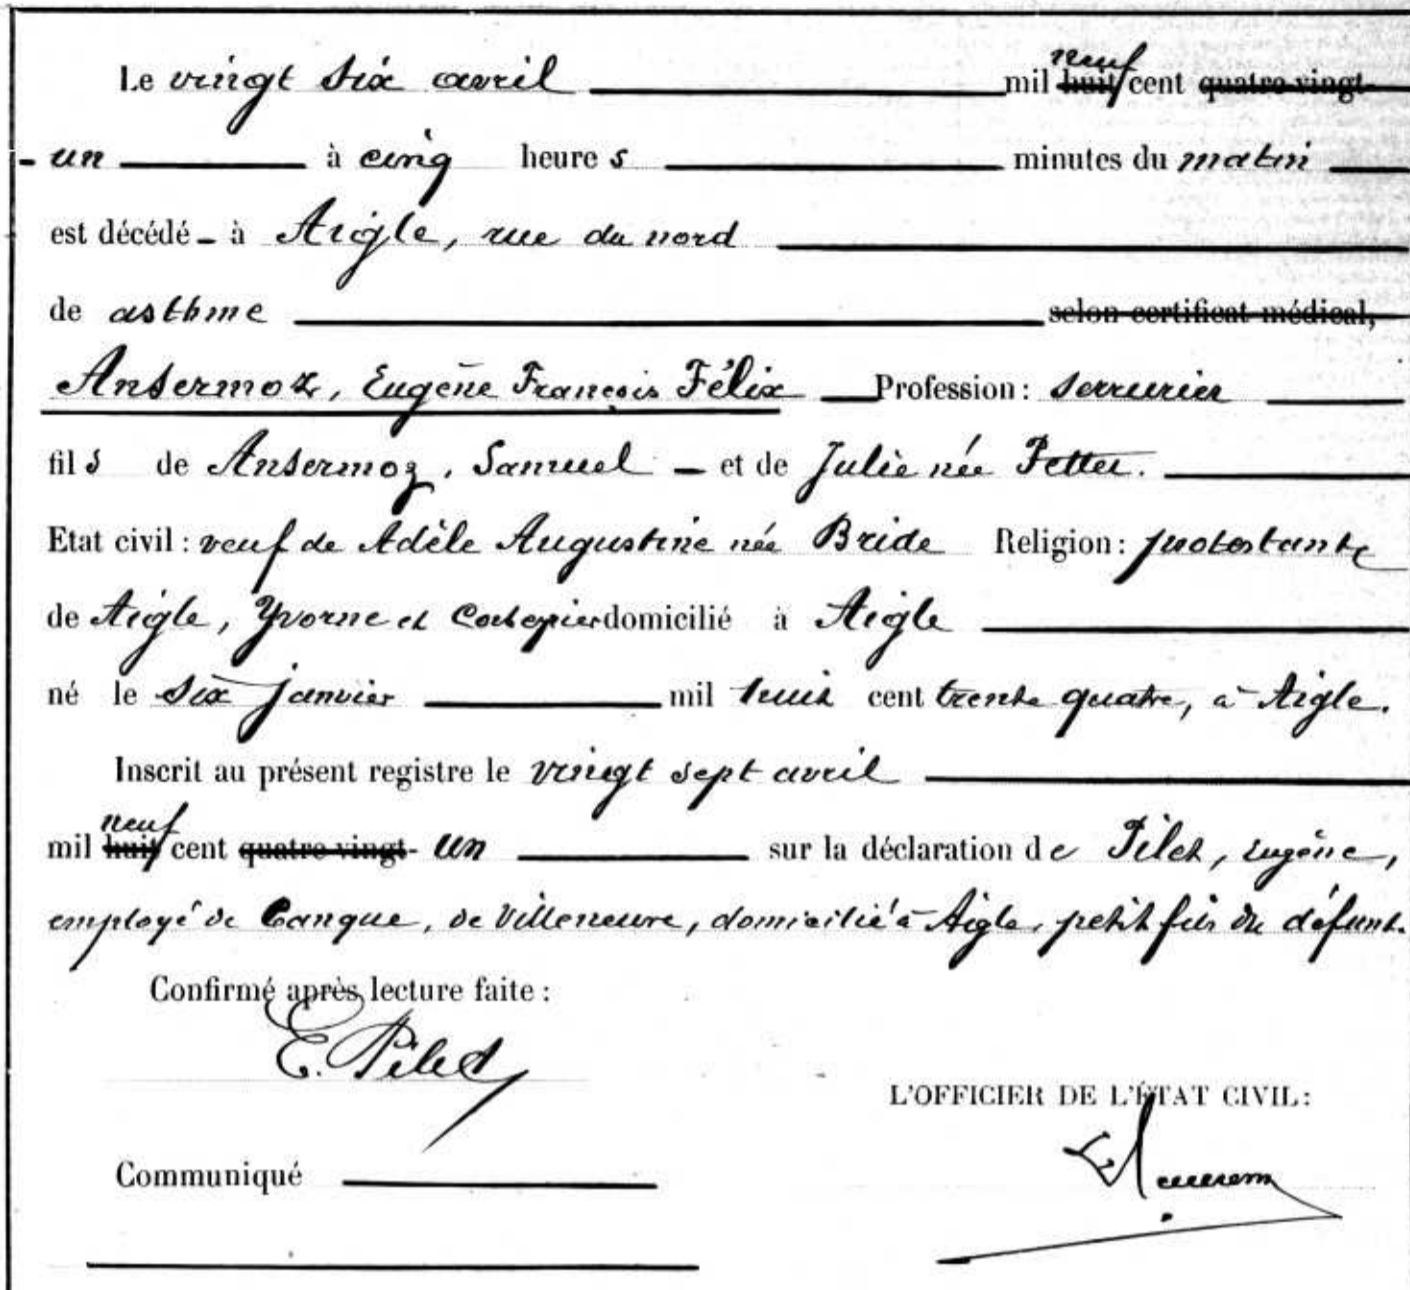 Le vingt six avril mil neuf cent
un à cinq heures minutes du matin
est décédé à Aigle, rue du nord
de asthme selon certificat médical,
Ansermoz, Eugène François Félix Profession: serrurier
fils de Ansermoz, Samuel - et de Julie née Petter.
Etat civil: veuf de Adèle Augustine née Bride Religion: protestante
de Aigle, Yvorne et Corbeyrier domicilié à Aigle
né le six janvier mil huit cent trente quatre, à Aigle.
Inscrit au présent registre le vingt sept avril
mil neuf cent un sur la déclaration de Pilet, Eugène,
employé de Banque, de Villeneuve, domicilié à Aigle, petit fils du défunt.
Confirmé après lecture faite:
E. Pilet
L'OFFICIER DE L'ÉTAT CIVIL:
Communiqué